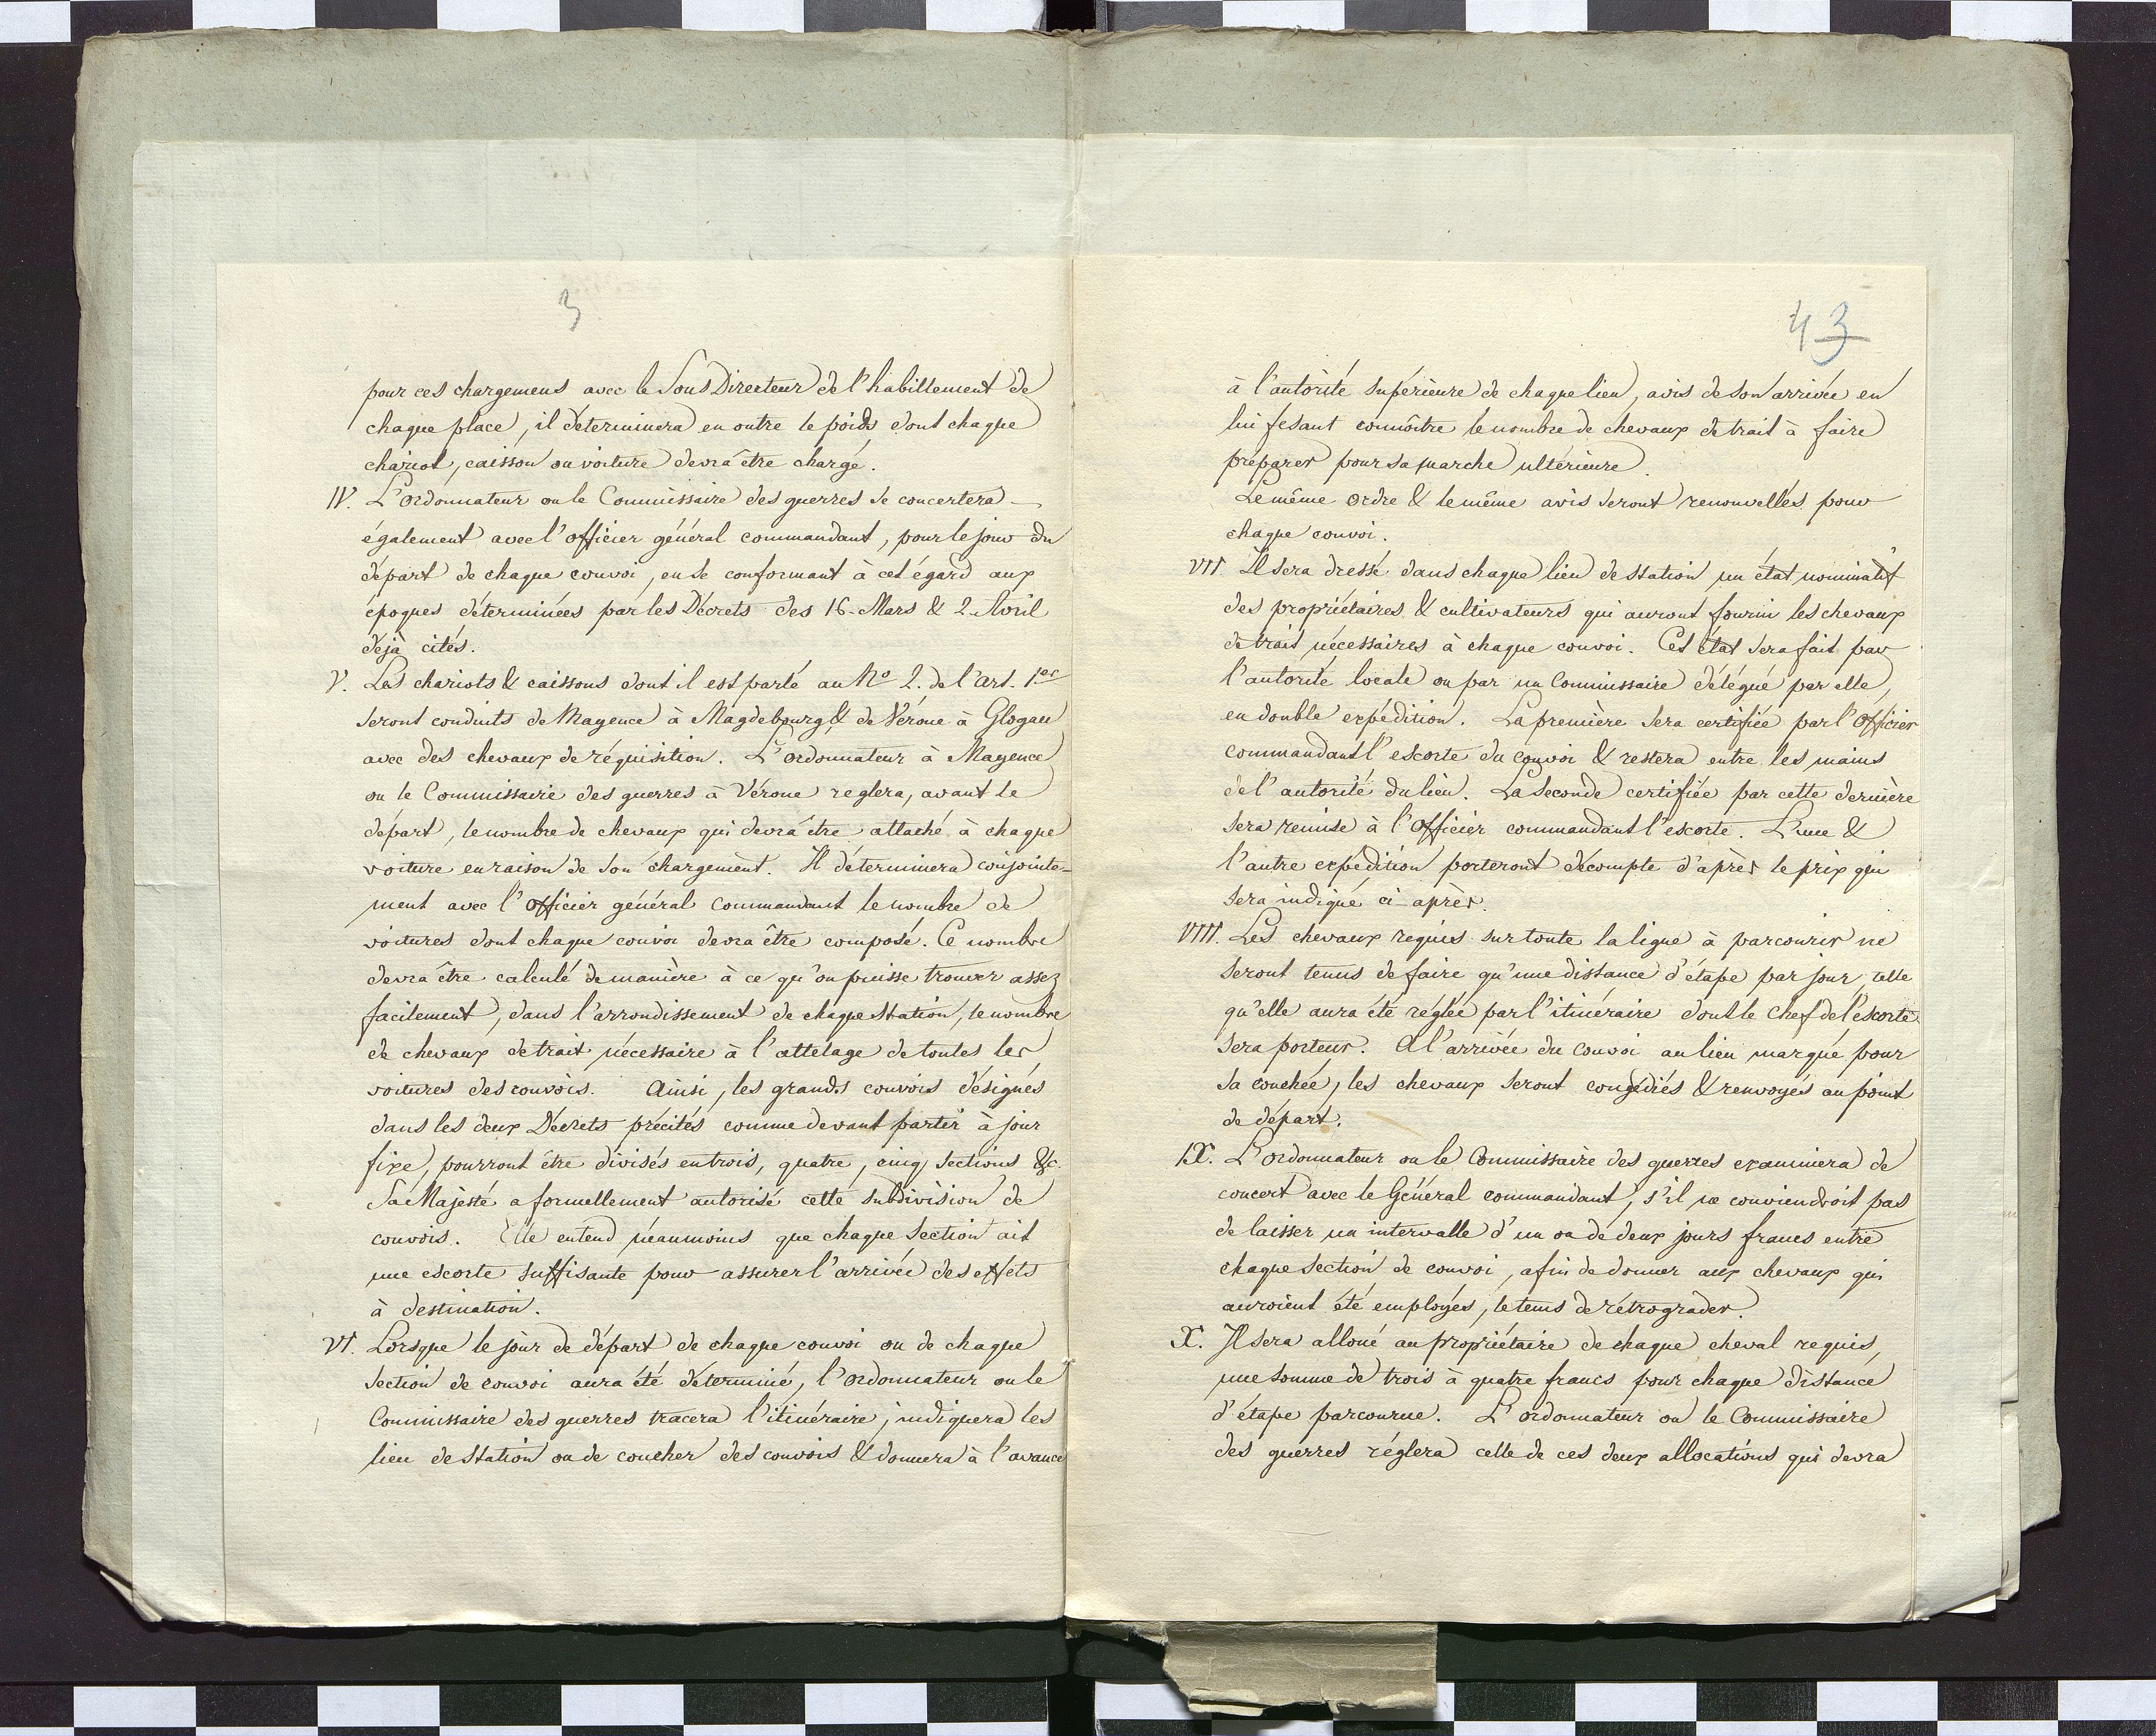 3
pour ces chargemens avec le Sous Directeur de l'habillement de
chaque place, il déterminera en outre le poids dont chaque
chariot, caisson ou voiture devra être chargé.
IV. L'ordonnateur ou le Commissaire des guerres se concertera
également avec l'officier général commandant, pour le jour du
départ de chaque convoi, en se conformant à cet égard aux
époques déterminées par les Décrets des 16 Mars & 2 Avril
déjà cités.
V. Les chariots & caissons dont il est parlé au No 2. de l'art. 1er
seront conduits de Mayence à Magdebourg & de Vérone à Glogau
avec des chevaux de réquisition. L'ordonnateur à Mayence
ou le Commissaire des guerres à Vérone reglera, avant le
départ, le nombre de chevaux qui devra être attaché à chaque
voiture en raison de son chargement. Il déterminera conjointe-
ment avec l'officier général commandant le nombre de
voitures dont chaque convoi devra être composé. Ce nombre
devra être calculé de manière à ce qu'on puisse trouver assez
facilement, dans l'arrondissement de chaque station, le nombre
de chevaux de trait nécessaire à l'attelage de toutes les
voitures des convois. Ainsi, les grands convois désignés
dans les deux Décrets précités comme devant partir à jour
fixe, pourront être divisés en trois, quatre, cinq sections &c.
Sa Majesté a formellement autorisé cette subdivision de
convois. Elle entend néanmoins que chaque section ait
une escorte suffisante pour assurer l'arrivée des effets
à destination.
VI. Lorsque le jour de départ de chaque convoi ou de chaque
section de convoi aura été déterminé, l'ordonnateur ou le
Commissaire des guerres tracera l'itinéraire, indiquera les
lieu de station ou de coucher des convois & donnera à l'avance
43
à l'autorité supérieure de chaque lieu, avis de son arrivée en
lui fesant connôitre le nombre de chevaux de trait à faire
préparer pour sa marche ultérieure.
Le même ordre & le même avis seront renouvellés pour
chaque convoi.
VII. Il sera dressé dans chaque lieu de station un état nominatif
des propriétaires & cultivateurs qui auront fourni les chevaux
de trait nécessaires à chaque convoi. Cet état sera fait par
l'autorité locale ou par un Commissaire délégué par elle,
en double expédition. La première sera certifiée par l'officier
commandant l'escorte du convoi & restera entre les mains
de l'autorité du lieu. La seconde certifiée par cette dernière
sera remise à l'officier commandant l'escorte. L'une &
l'autre expédition porteront décompte d'après le prix qui
sera indiqué ci-après.
VIII. Les chevaux requis sur toute la ligne à parcourir ne
seront tenus de faire qu'une distance d'étape par jour, telle
qu'elle aura été réglée par l'itinéraire dont le chef de l'escorte
sera porteur. A l'arrivée du convoi au lieu marqué pour
sa couchée, les chevaux seront congédiés & renvoyés au point
de départ.
IX. L'ordonnateur ou le Commissaire des guerres examinera de
concert avec le Général commandant, s'il ne conviendroit pas
de laisser un intervalle d'un ou de deux jours francs entre
chaque section de convoi, afin de donner aux chevaux qui
auroient été employés, le tems de rétrograder.
X. Il sera alloué au propriétaire de chaque cheval requis,
une somme de trois à quatre francs pour chaque distance
d'étape parcourue. L'ordonnateur ou le Commissaire
des guerres réglera celle de ces deux allocations qui devra